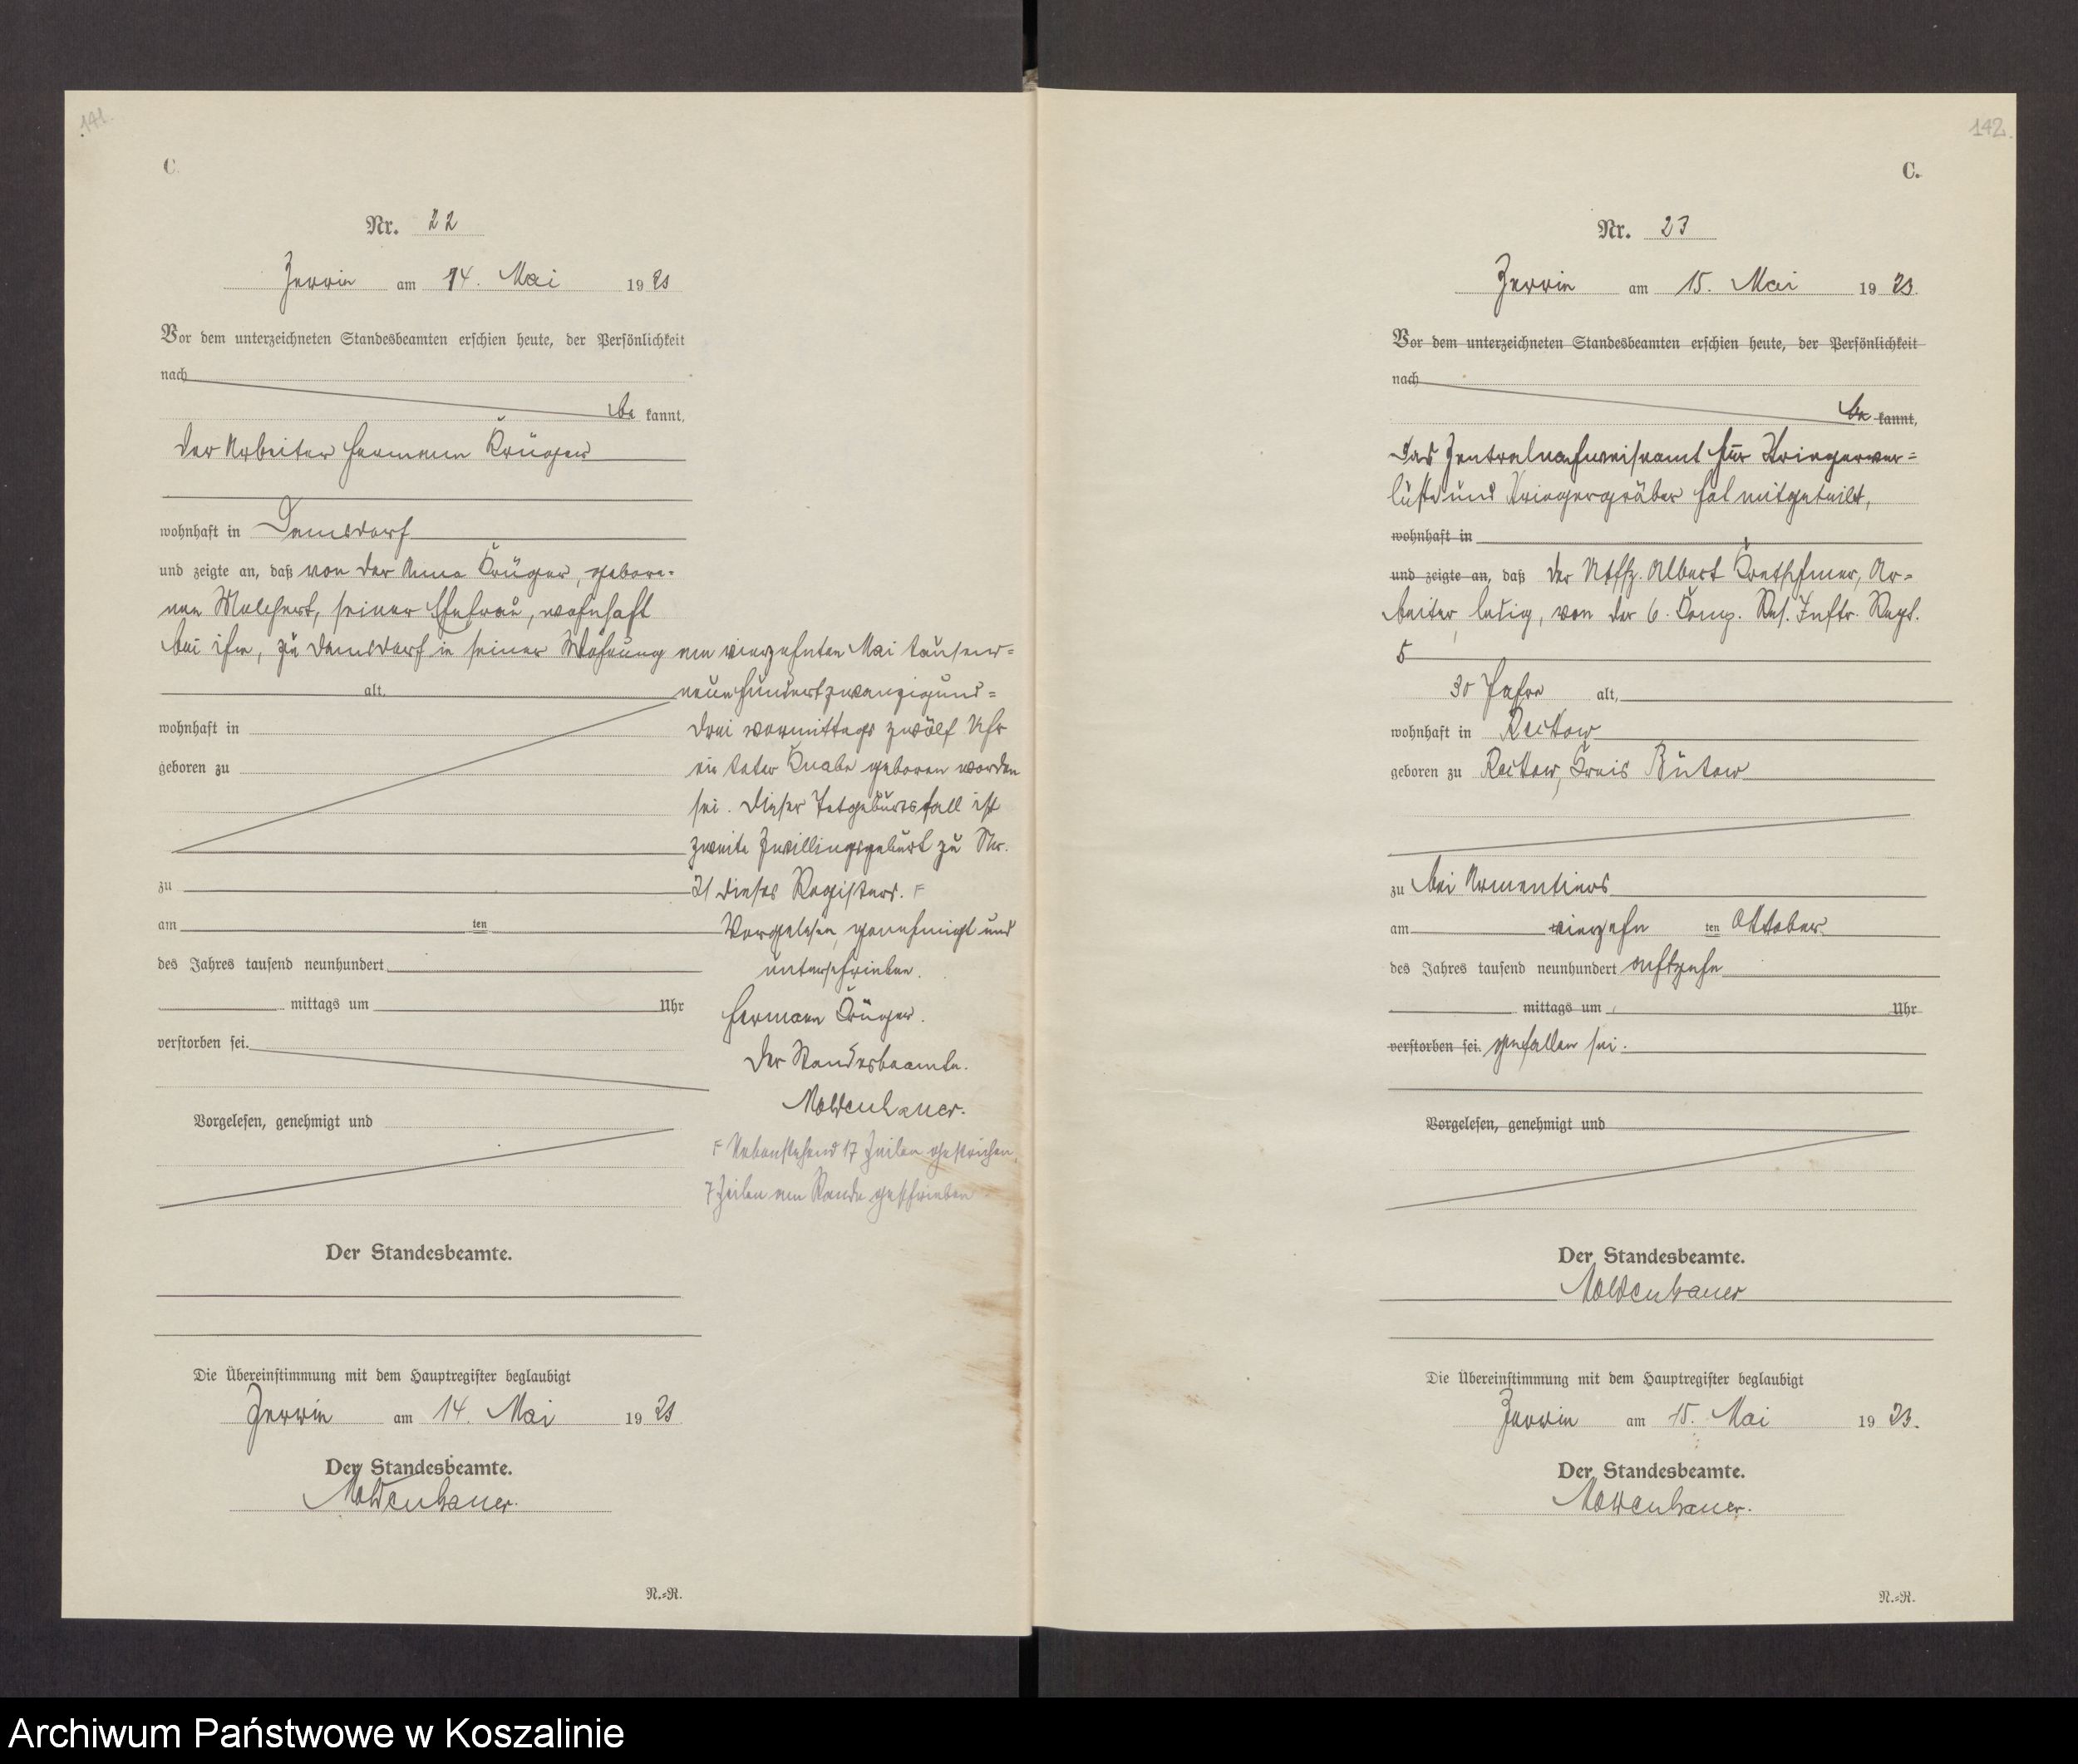 141.
C.
Nr. 22
Zerrin am 14. Mai 1923
Vor dem unterzeichneten Standesbeamten erschien heute, der Persönlichkeit
nach
be kannt,
der Arbeiter Hermann Krüger
wohnhaft in Damsdorf
und zeigte an, daß von der Anna Krüger, gebore-
nen Melchert, seiner Ehefrau, wohnhaft
bei ihm, zu Damsdorf in seiner Wohnung am vierzehnten Mai tausend=
alt, neunhundertzwanzigund=
wohnhaft in drei vormittags zwölf Uhr
geboren zu ein toter Knabe geboren worden
sei. Dieser Totgeburtsfall ist
zweite Zwillingsgeburt zu Nr.
zu 21 dieses Registers. F
am ten Vorgelesen, genehmigt und
des Jahres tausend neunhundert unterschrieben.
mittags um Uhr Hermann Krüger.
verstorben sei. Der Standesbeamte.
Moldenhauer.
Vorgelesen, genehmigt und
F Nebenstehend 17 Zeilen gestrichen,
7 Zeilen am Rande geschrieben
Der Standesbeamte.
Die Übereinstimmung mit dem Hauptregister beglaubigt
Zerrin am 14. Mai 1923
Der Standesbeamte.
Moldenhauer.
N.=R.
142.
C.
Nr. 23
Zerrin am 15. Mai 1923.
Vor dem unterzeichneten Standesbeamten erschien heute, der Persönlichkeit
nach
be kannt,
Das Zentralnachweiseamt für Kriegerver=
luste und Kriegergräber hat mitgeteilt,
wohnhaft in
und zeigte an, daß der Utffz. Albert Ar=
beiter, ledig, von der 6. Komp. Res. Inftr. Regt.
5
30 Jahre alt,
wohnhaft in Reckow
geboren zu Reckow, Kreis Bütow
zu bei Armentiers
am vierzehn ten Oktober
des Jahres tausend neunhundert achtzehn
mittags um Uhr
verstorben sei. gefallen sei.
Vorgelesen, genehmigt und
Der Standesbeamte.
Moldenhauer
Die Übereinstimmung mit dem Hauptregister beglaubigt
Zerrin am 15. Mai 1923.
Der Standesbeamte.
Moldenhauer.
N.=R.
Archiwum Państwowe w Koszalinie